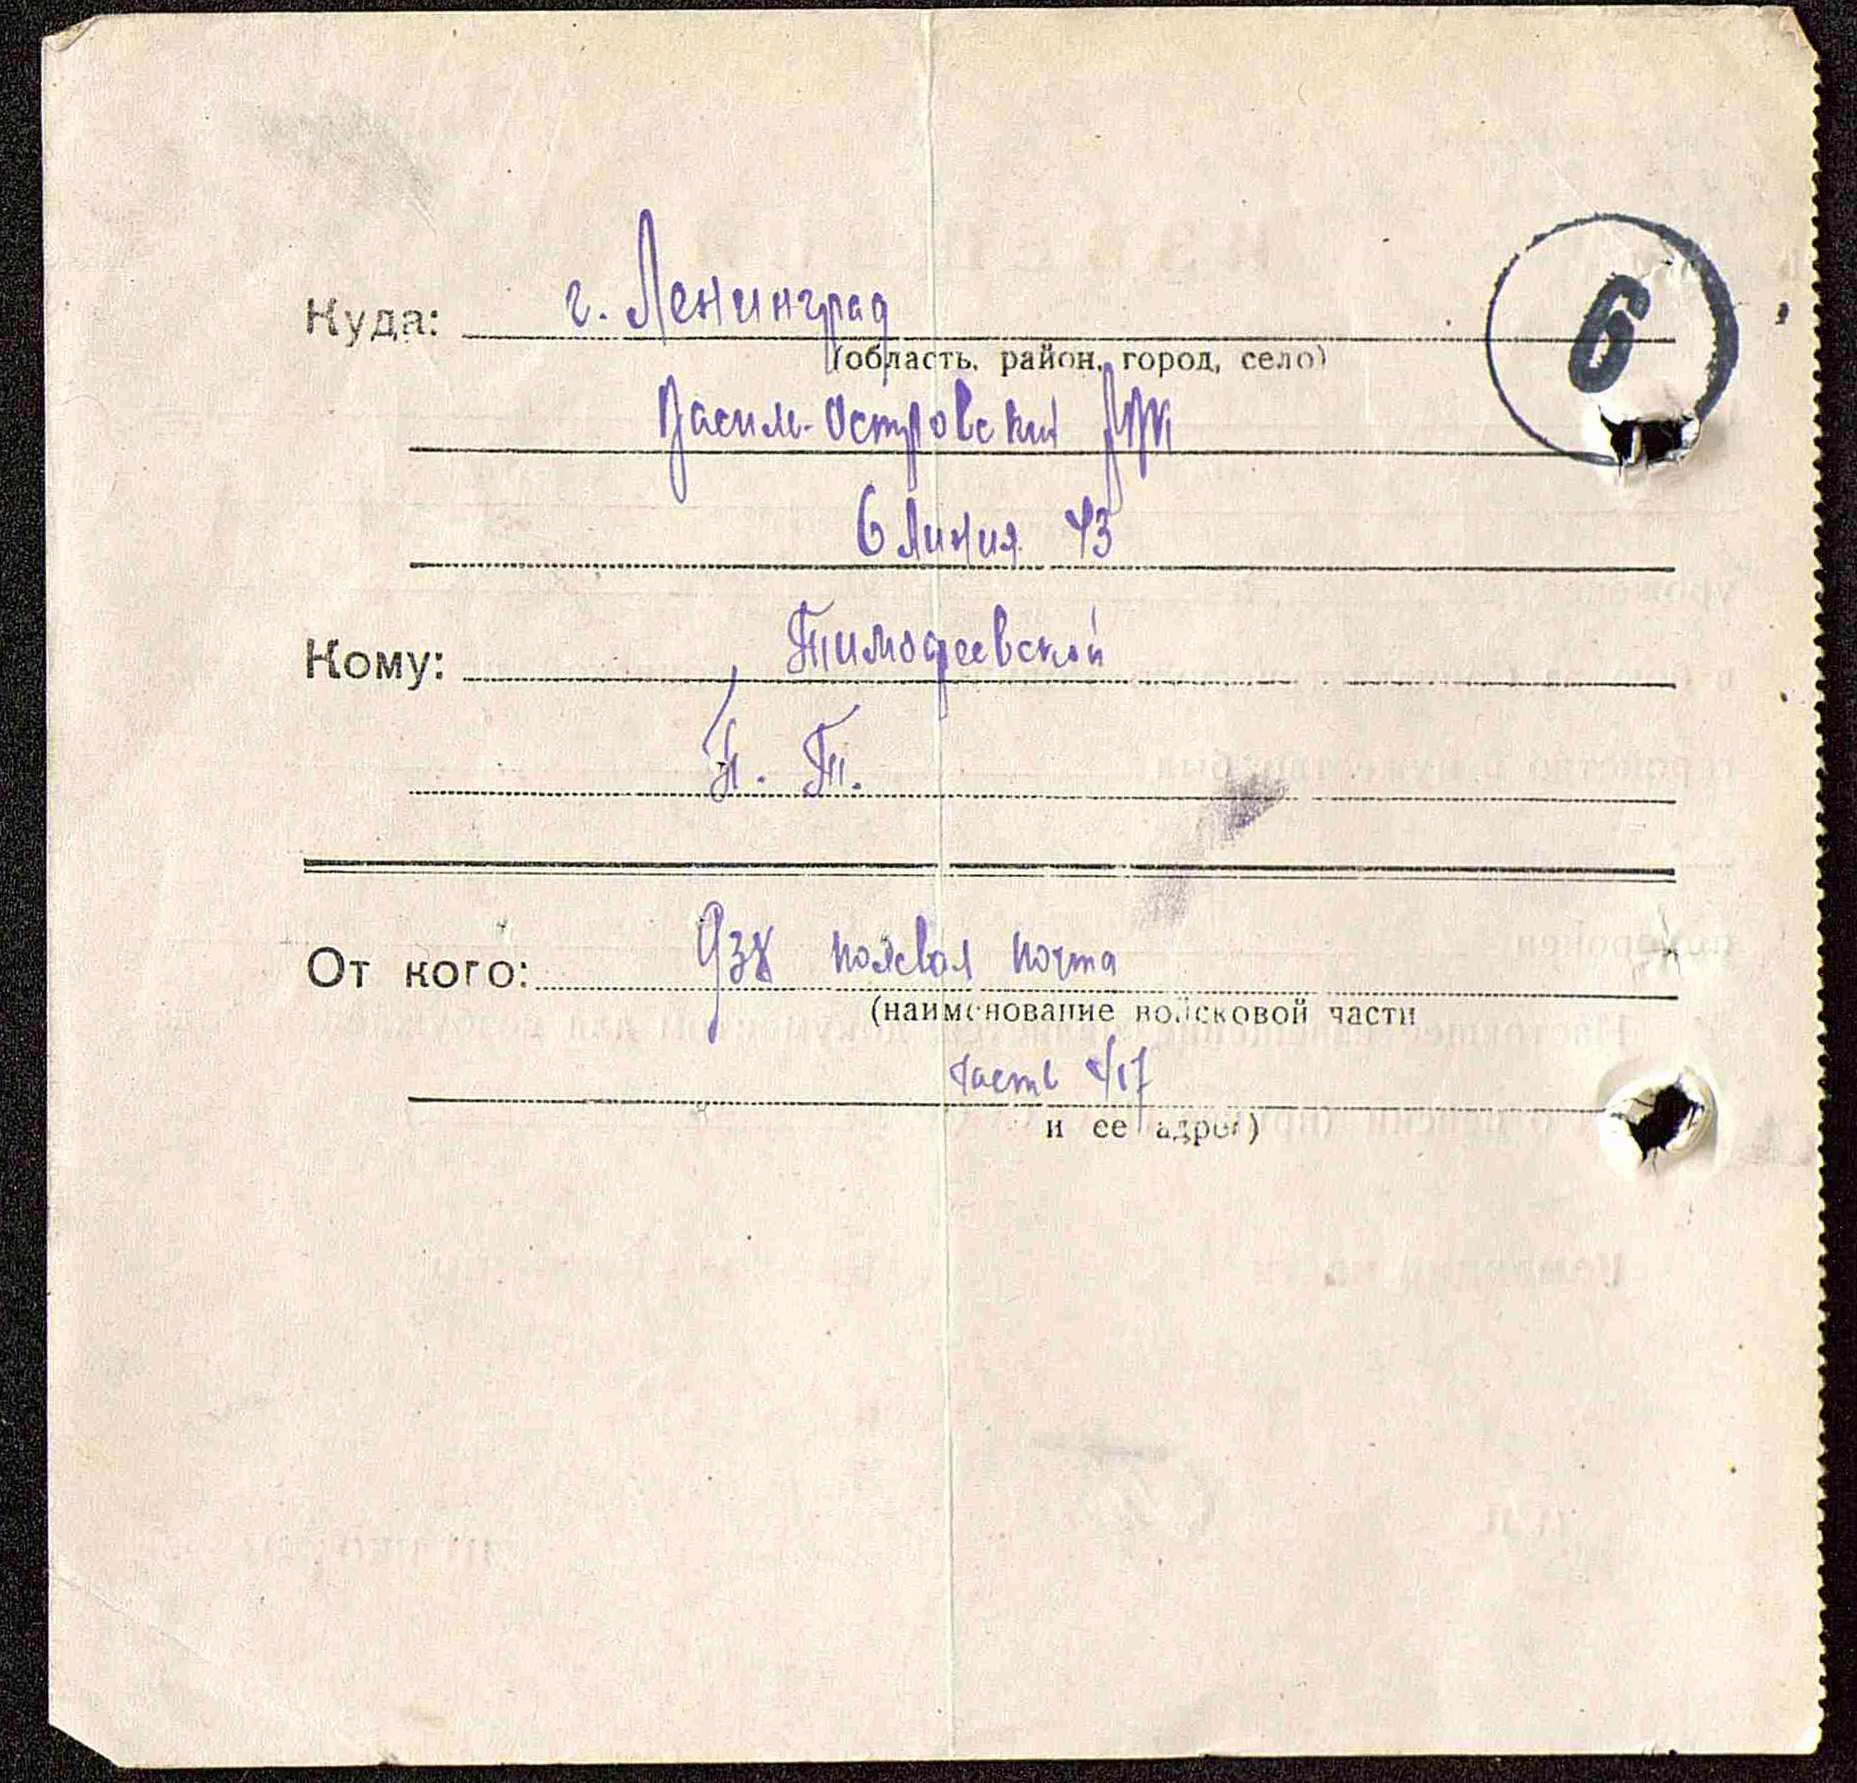 6
Куда: г. Ленинград
(область, район, город, село)
Васил-Островский РВК
6 линия 43
Кому: Тимофеевской
Т. Т.
От кого: 938 полевая почта
(наименование войсковой части
часть 417
и ее адрес)